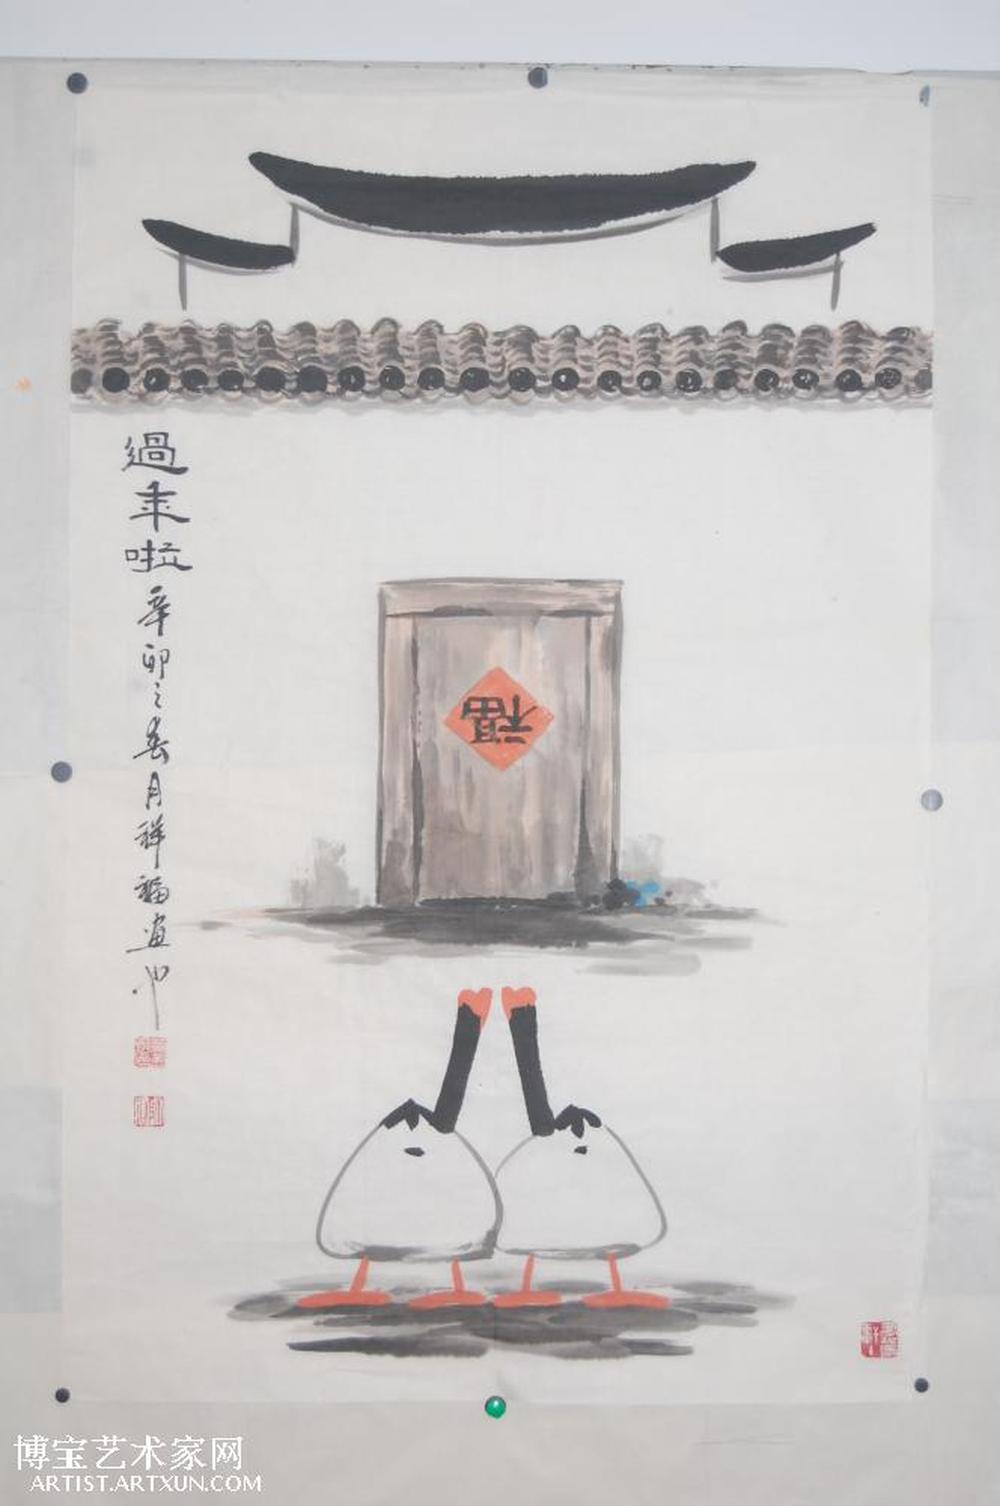 過年啦
辛卯之春月祥福画也
福
博宝艺术家网
ARTIST.ARTXUN.COM